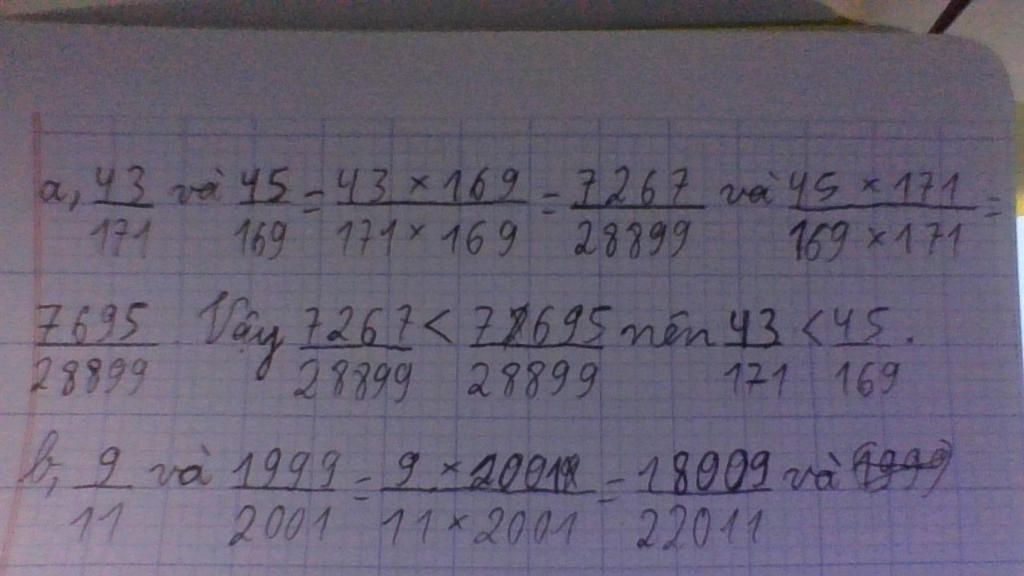 a, 43/171 và 45/169 = 43 × 169/171 × 169 = 7267/28899 và 45 × 171/169 × 171 =
7695/28899. Vậy 7267/28899 < 7695/28899 nên 43/171 < 45/169.
b, 9/11 và 1999/2001 = 9 × 2001/11 × 2001 = 18009/22011 và